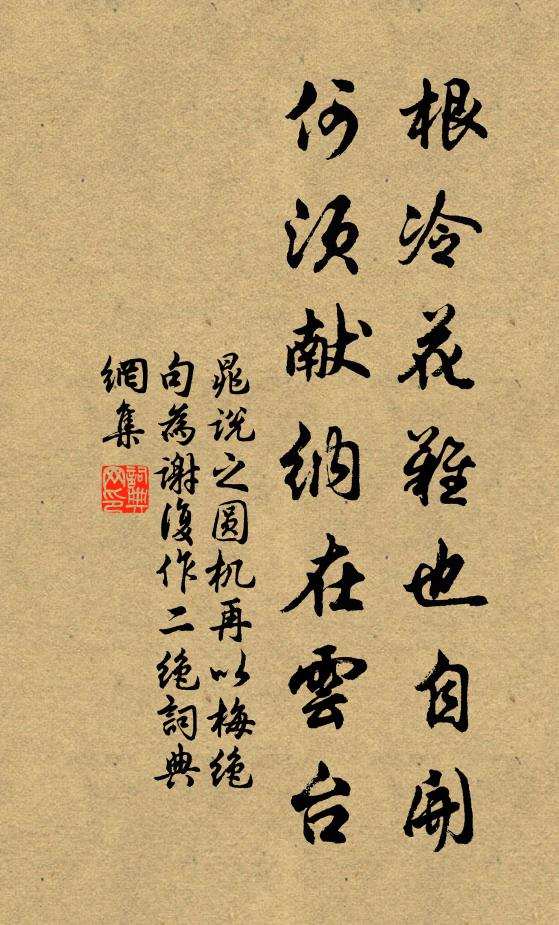 根冷花難也自開
何須献納在雲台
晁説之圓机再以梅絶
句為謝復作二絶詞典
網集
詞典
网印